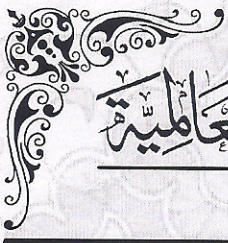 عالمية